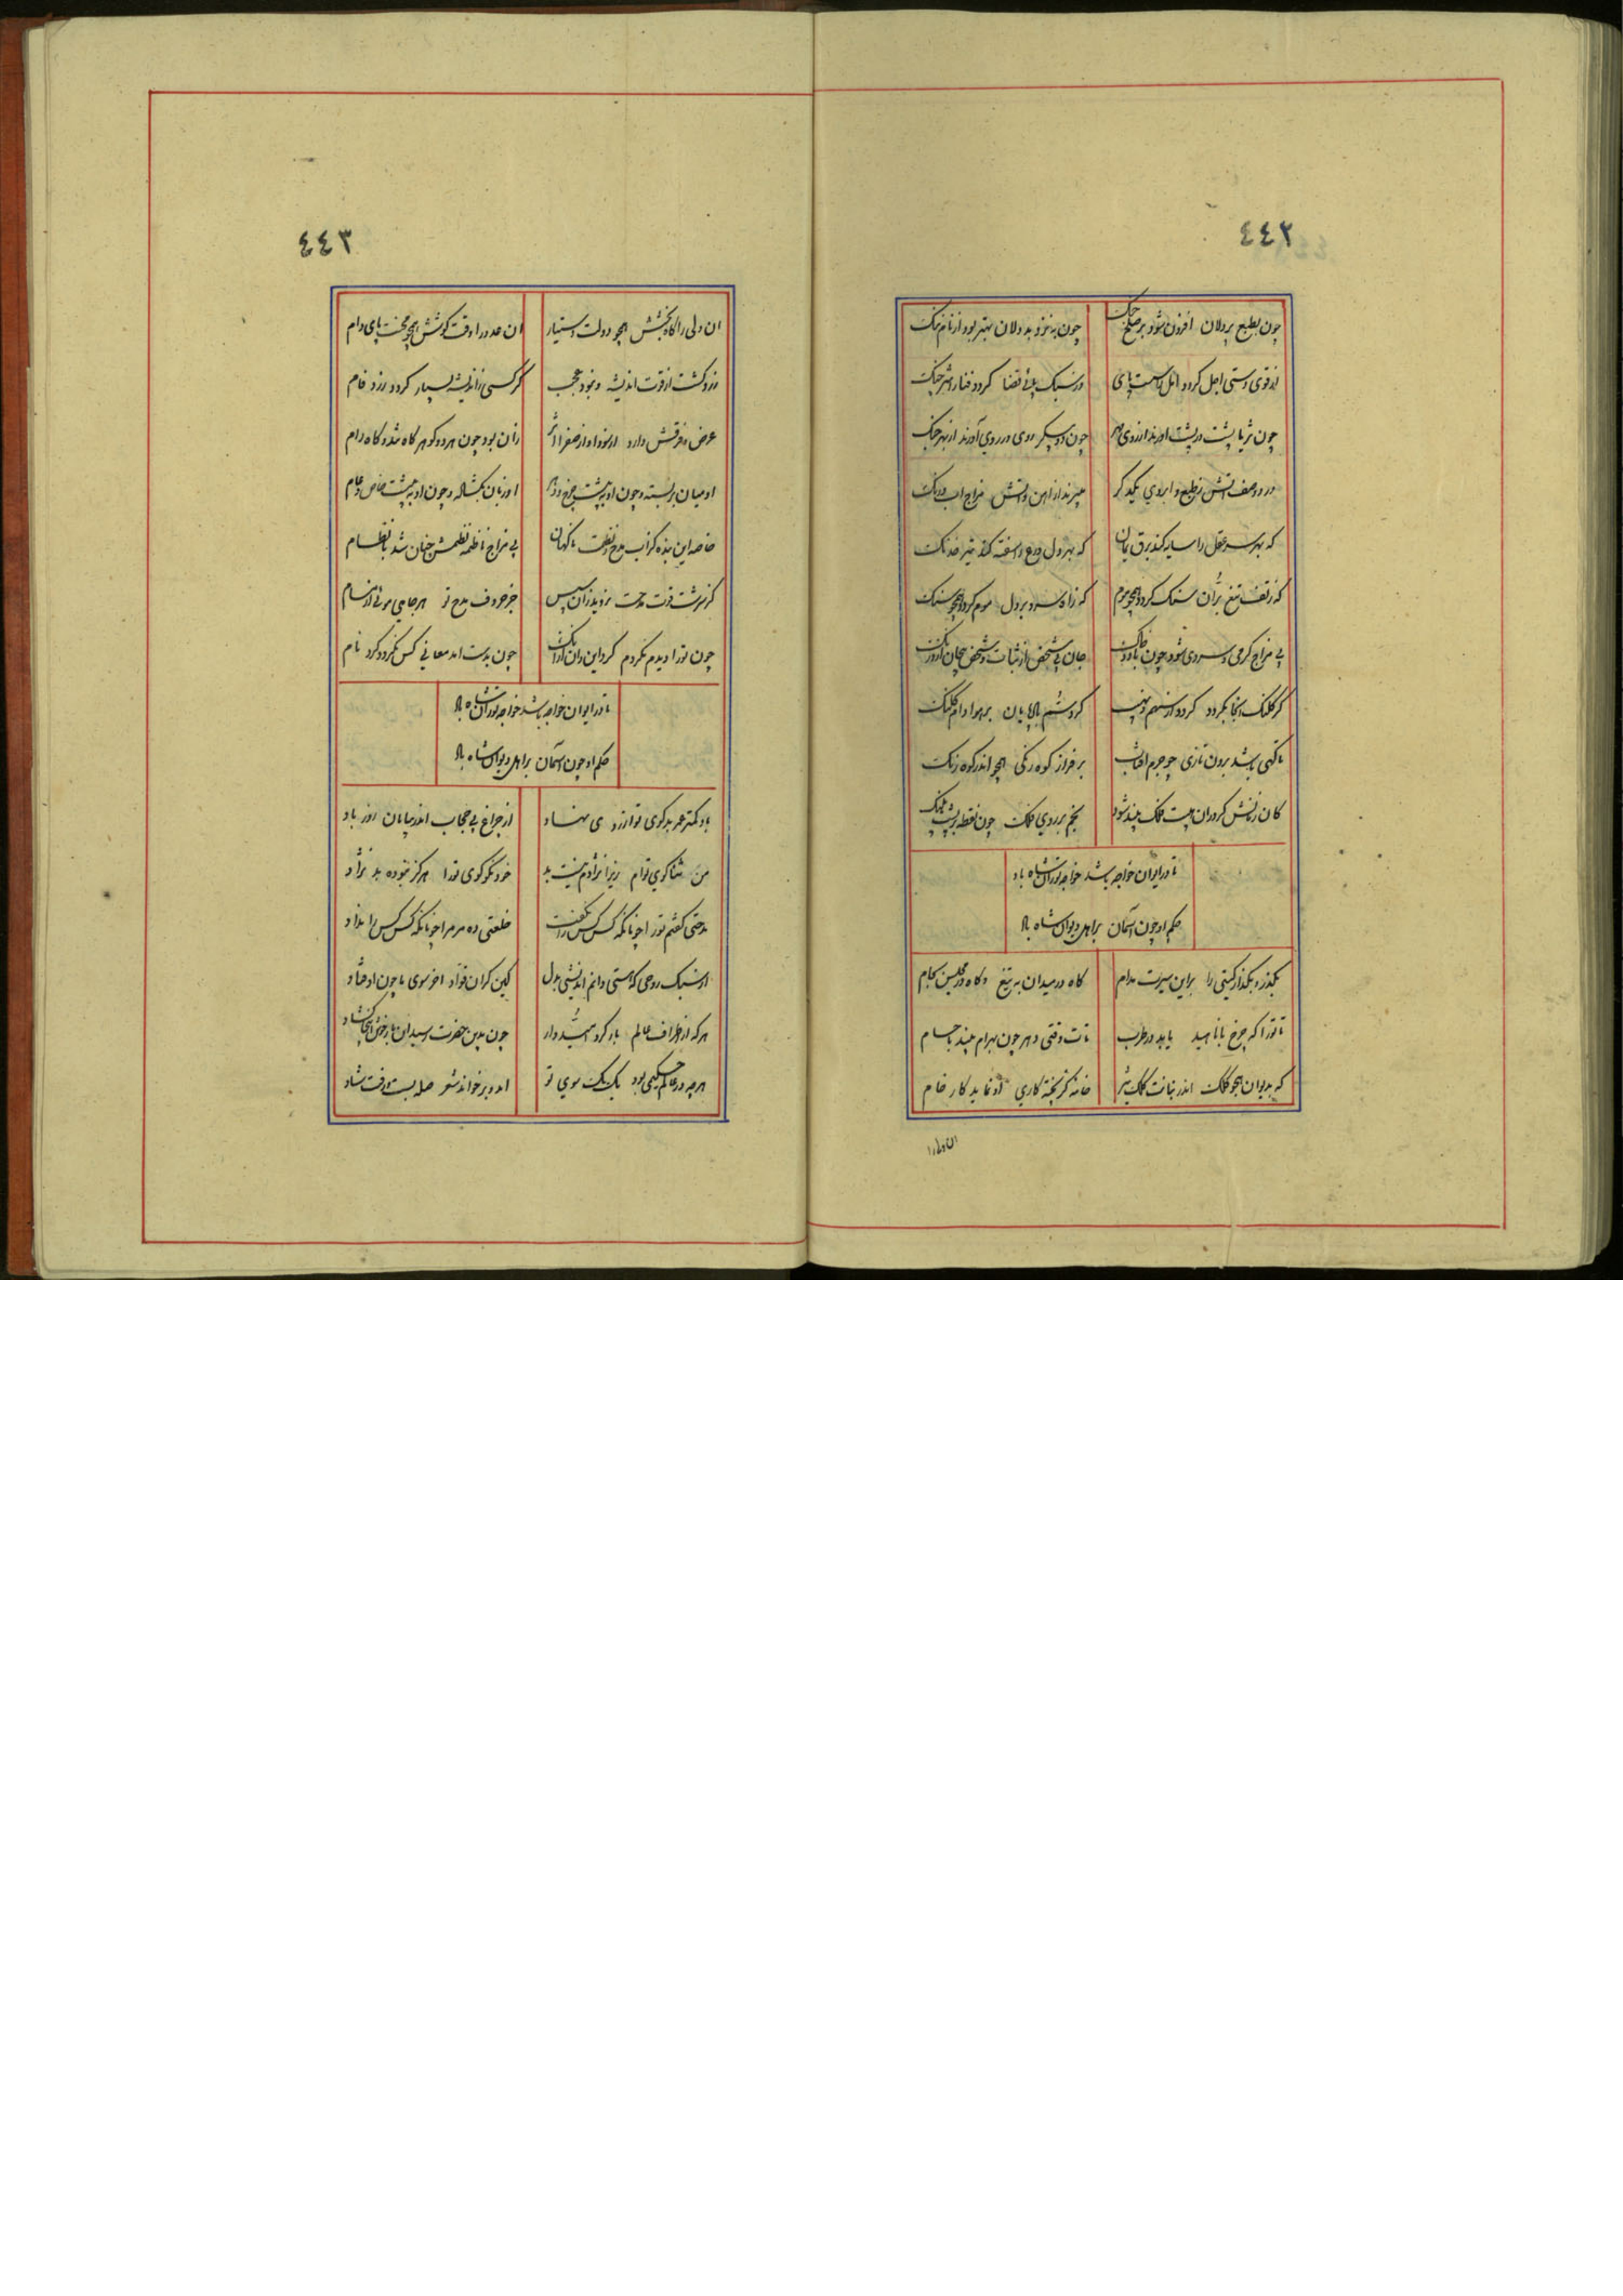 ٤٤٢
چون بطبع پردلان افزون شود بر صلح جنک
چون به نزد بددلان بهتر بود از نام ننک
از قوی دستی اجل کردد امل را سست پای
در سبک پائی قضا کردد فنا را
چون ثریا پشت در پشت اورند از روی مهر
چون دو پیکر روی در روی آورند از بهر جنک
در دو صف اتش ز طبع و ابروی یکدکر
میبرند از اهن و اتش مزاج اب و رنک
که بهر سر عقل را سایه کند برق یمان
که بهر دل درع را سفته کند تیر خدنک
که ز تف تیغ بران سنک کردد همچو موم
که ز اه سرد بر دل موم کردد همچو سنک
بی مزاج کرمی و سردی شود چون خاک و باد
جان بی شخص از شتاب و شخص بیجان از درنک
کر کلنک انجا بکردد کردد از سهم و نهیب
کرد شم بادپایان بر هوا دام کلنک
ناکهی باشد برون تازی چو جرم افتاب
بر فراز کوه رنکی همچو اندر کوه رنک
کان ز نقش کردران پشت فلک بیند شود
نجم بر روی فلک چون نقطه بر پشت پلنک
تا در ایوان خواجه باشد خواجه توران شاه باد
حکم او چون آسمان بر اهل دیوان شاه باد
بکذر و بکذار کیتی را براین سیرت مدام
کاه در میدان به تیغ و کاه در مجلس بجام
تا ترا که چرخ با ناهید یابد در طرب
تات وقتی دهر چون بهرام بیند با حسام
که بدیوان همچو فلک اندر بنانت کلک تیر
خانه کز پخته کاری او نماید کار خام
ان ولی را
٤٤٣
ان ولی را کاه بخشش همچو دولت دستیار
ان عدو را وقت کوشش همچو محنت پای دام
زرد کشت از قوت اندیشه و نبود عجب
کر کسی ز اندیشه بسیار کردد زرد فام
عرض و فرقش دارد از سودا و از صفرا اثر
زان بود چون هر دو کوهر کاه تند و کاه رام
او میان بربسته و چون او به پشت چرخ و دهر
او زبان بکشاده و چون او به پشت خاص و عام
خاصه این بنده کز اب مدح و نظمت ناکهان
بی مزاج ناظمه نظمش چنان شد با نظام
کز سرشت قوت مدحت نروید زان سپس
جز حروف مدح تو بر جای موئی از مسام
چون ترا دیدم نکردم کرد این و ان از انک
چون بدست امد معانی کس نکردد کرد نام
تا در ایوان خواجه باشد خواجه توران شاه باد
حکم او چون آسمان بر اهل دیوان شاه باد
باد کمتر عمر بدکوی تو از زودی نهاد
از چراغ بی حجاب اندر بیابان روز باد
من ثناکوی توام زیرا نژادم نیست بد
خود نکوکوی ترا هرکز نبوده بد نژاد
مدحتی کفتم ترا چونانکه کس کس را نکفت
خلعتی ده مر مرا چونانکه کس کس را نداد
از سبک روحی که هستی دانم اندیشی بدل
کین کران فواد اخر سوی ما چون اوفتاد
هر که از اطراف عالم بار کرد امیدوار
چون بدین حضرت رسید ان بار خویش اینجا کشاد
هر چه در عالم حکیمی بود یک یک سوی تو
امد و برخواند شعر صله بستد رفت شاد